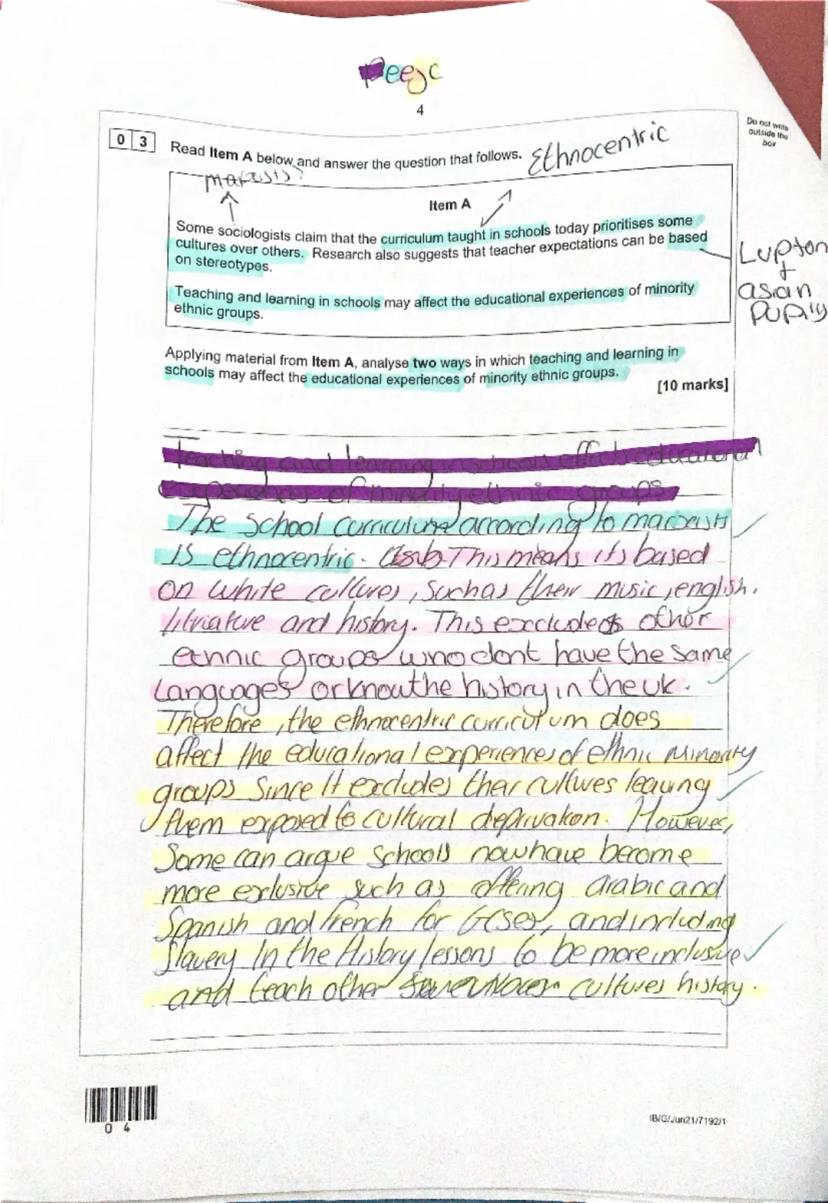 Peejc
4
Do not write
outside the
box
0 3 Read Item A below and answer the question that follows. Ethnocentric
marxists?
Item A
Some sociologists claim that the curriculum taught in schools today prioritises some
cultures over others. Research also suggests that teacher expectations can be based
on stereotypes.
Lupton
+
asian
pupils
Teaching and learning in schools may affect the educational experiences of minority
ethnic groups.
Applying material from Item A, analyse two ways in which teaching and learning in
schools may affect the educational experiences of minority ethnic groups.
[10 marks]
Teaching and learning in schools effect educational
experiences of minority ethnic groups
The school curriculum according to marxists
is ethnocentric. This means its based
on white cultures, such as their music, english.
litriature and history. This excludes other
ethnic groups who dont have the same
languages or know the history in the uk.
Therefore, the ethnocentric curriculum does
affect the educational experiences of ethnic minority
groups since it excludes their cultures leaving
them exposed to cultural deprivation. However,
Some can argue schools now have become
more exclusive such as offering arabic and
Spanish and french for GCSES, and including
slavery in the History lessons to be more inclusive
and teach other cultures history.
0 4
IB/G/Jun21/7192/1